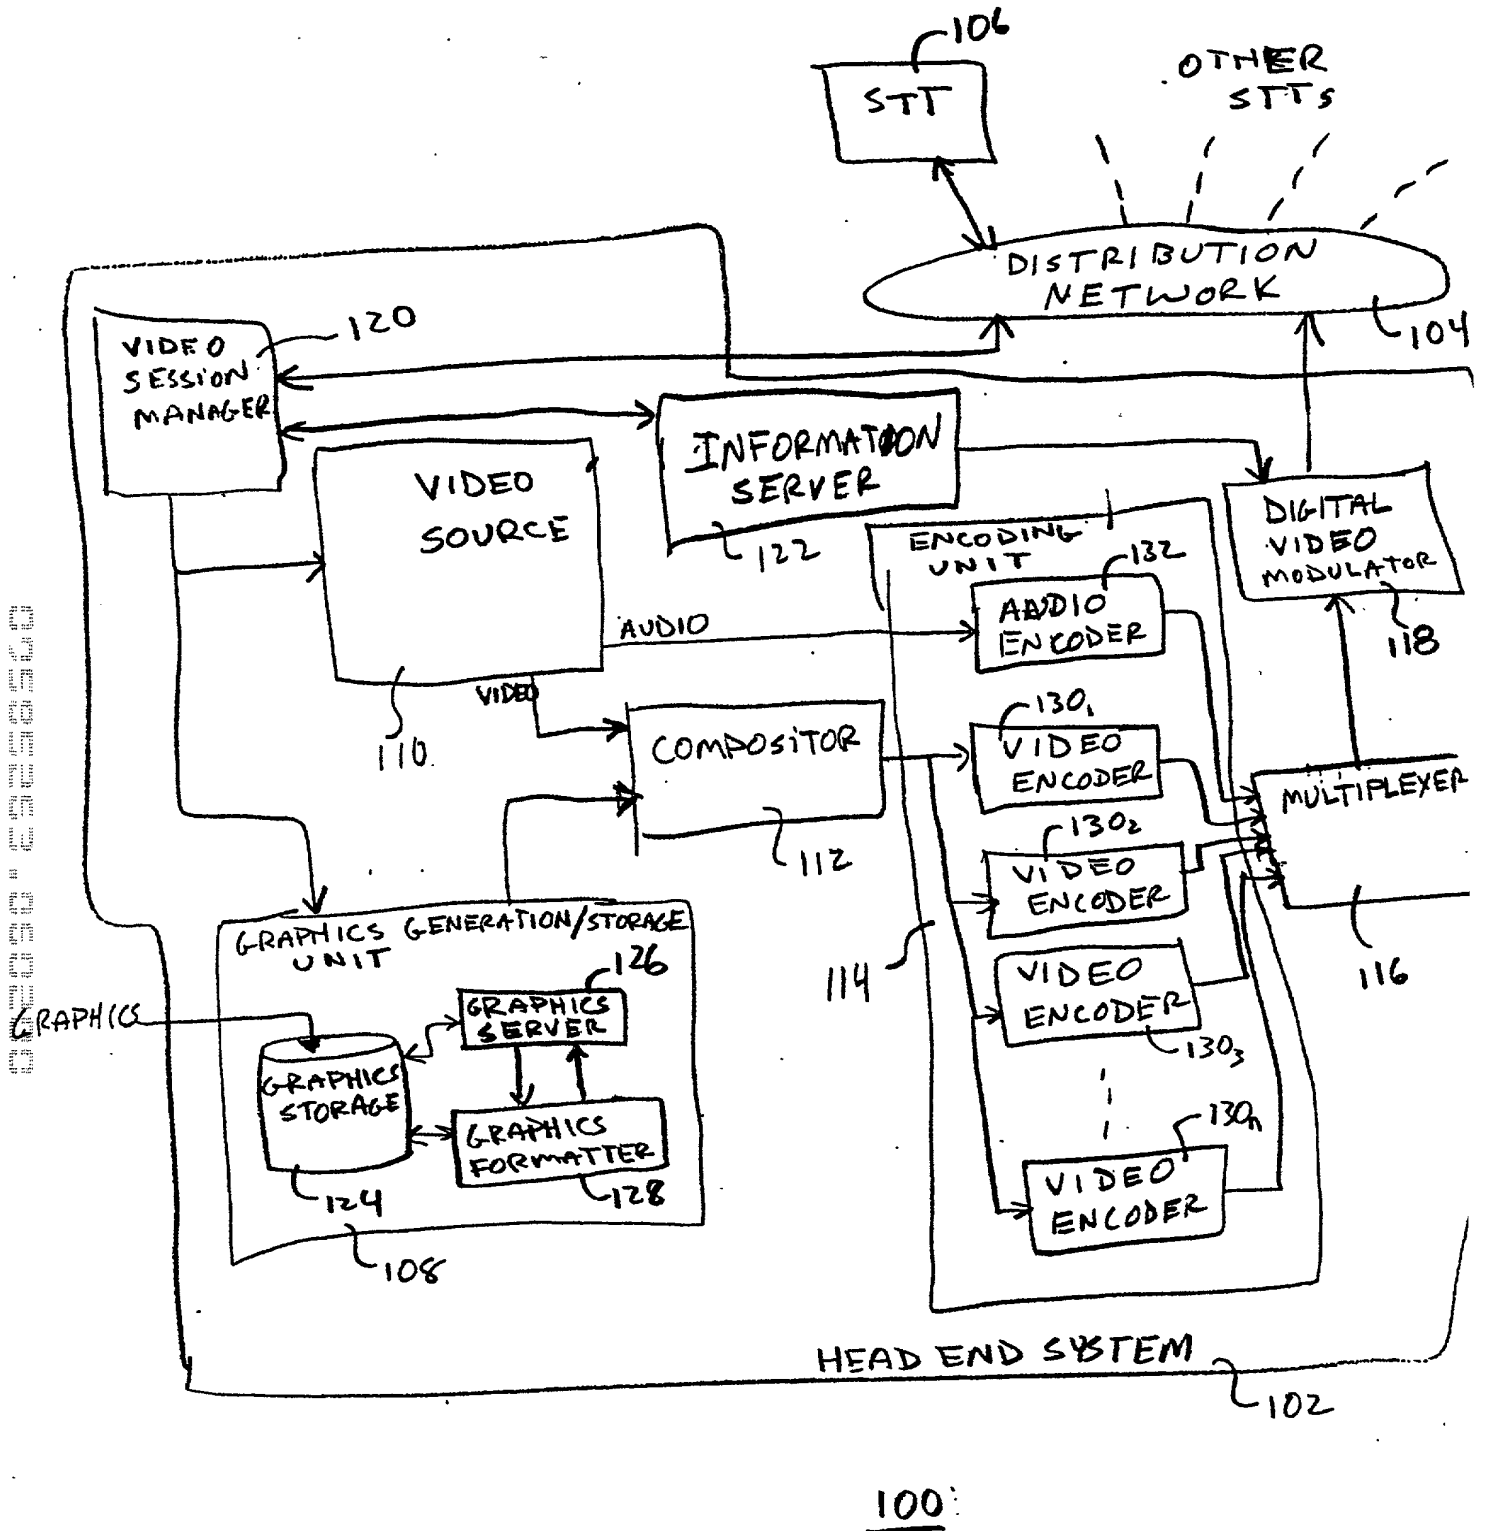 106
STT
OTHER
STTs
DISTRIBUTION
NETWORK
104
120
VIDEO
SESSION
MANAGER
INFORMATION
SERVER
122
VIDEO
SOURCE
110
AUDIO
VIDEO
ENCODING
UNIT
132
AUDIO
ENCODER
DIGITAL
VIDEO
MODULATOR
118
COMPOSITOR
112
130₁
VIDEO
ENCODER
130₂
VIDEO
ENCODER
VIDEO
ENCODER
130₃
130ₙ
VIDEO
ENCODER
114
MULTIPLEXER
116
GRAPHICS GENERATION/STORAGE
UNIT
126
GRAPHICS
SERVER
GRAPHICS
GRAPHICS
STORAGE
124
GRAPHICS
FORMATTER
128
108
HEAD END SYSTEM
102
100